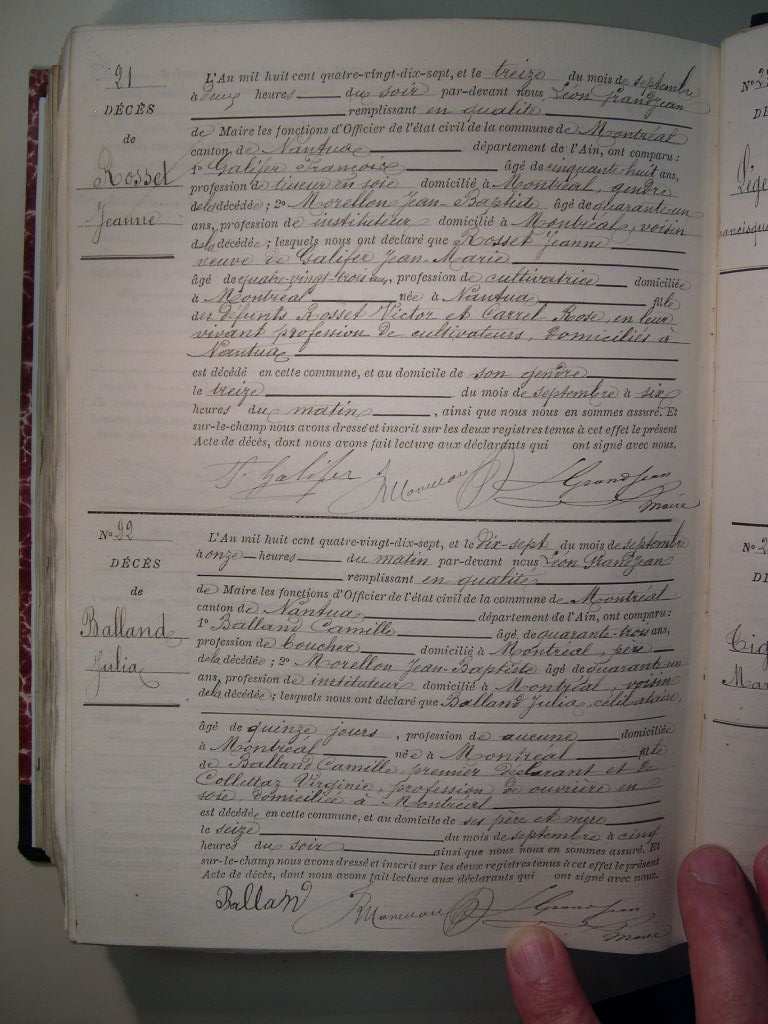 21
DÉCÈS
de
Rosset
Jeanne
L'An mil huit cent quatre-vingt-dix-sept, et le treize du mois de septembre
à deux heures du soir par-devant nous Léon Grandjean
remplissant en qualité
de Maire les fonctions d'Officier de l'état civil de la commune de Montréal
canton de Nantua département de l'Ain, ont comparu :
1º Galifer François âgé de cinquante huit ans,
profession de tisseur en soie domicilié à Montréal, gendre
de la décédée ; 2º Morellon Jean-Baptiste âgé de quarante un
ans, profession de instituteur domicilié à Montréal, voisin
de la décédée ; lesquels nous ont déclaré que Rosset Jeanne
veuve de Galifer Jean-Marie
âgé de quatre-vingt-trois ans, profession de cultivatrice domiciliée
à Montréal née à Nantua fille
des défunts Rosset Victor et Carrel Rose, en leur
vivant profession de cultivateurs, domiciliés à
Nantua
est décédé en cette commune, et au domicile de son gendre
le treize du mois de septembre à six
heures du matin, ainsi que nous nous en sommes assuré. Et
sur-le-champ nous avons dressé et inscrit sur les deux registres tenus à cet effet le présent
Acte de décès, dont nous avons fait lecture aux déclarants qui ont signé avec nous.
F. Galifer JBMorellon L Grandjean
maire
Nº 22
DÉCÈS
de
Balland
Julia
L'An mil huit cent quatre-vingt-dix-sept, et le dix-sept du mois de septembre
à onze heures du matin par-devant nous Léon Grandjean
remplissant en qualité
de Maire les fonctions d'Officier de l'état civil de la commune de Montréal
canton de Nantua département de l'Ain, ont comparu :
1º Balland Camille âgé de quarante-trois ans,
profession de boucher domicilié à Montréal, père
de la décédée ; 2º Morellon Jean-Baptiste âgé de quarante un
ans, profession de instituteur domicilié à Montréal, voisin
de la décédée ; lesquels nous ont déclaré que Balland Julia, célibataire,
âgé de quinze jours, profession de aucune domiciliée
à Montréal née à Montréal fille
de Balland Camille, premier déclarant et de
Collettaz Virginie, profession de ouvrière en
soie, domiciliée à Montréal
est décédée en cette commune, et au domicile de ses père et mère
le seize du mois de septembre à cinq
heures du soir ainsi que nous nous en sommes assuré. Et
sur-le-champ nous avons dressé et inscrit sur les deux registres tenus à cet effet le présent
Acte de décès, dont nous avons fait lecture aux déclarants qui ont signé avec nous.
Balland JBMorellon L Grandjean
maire